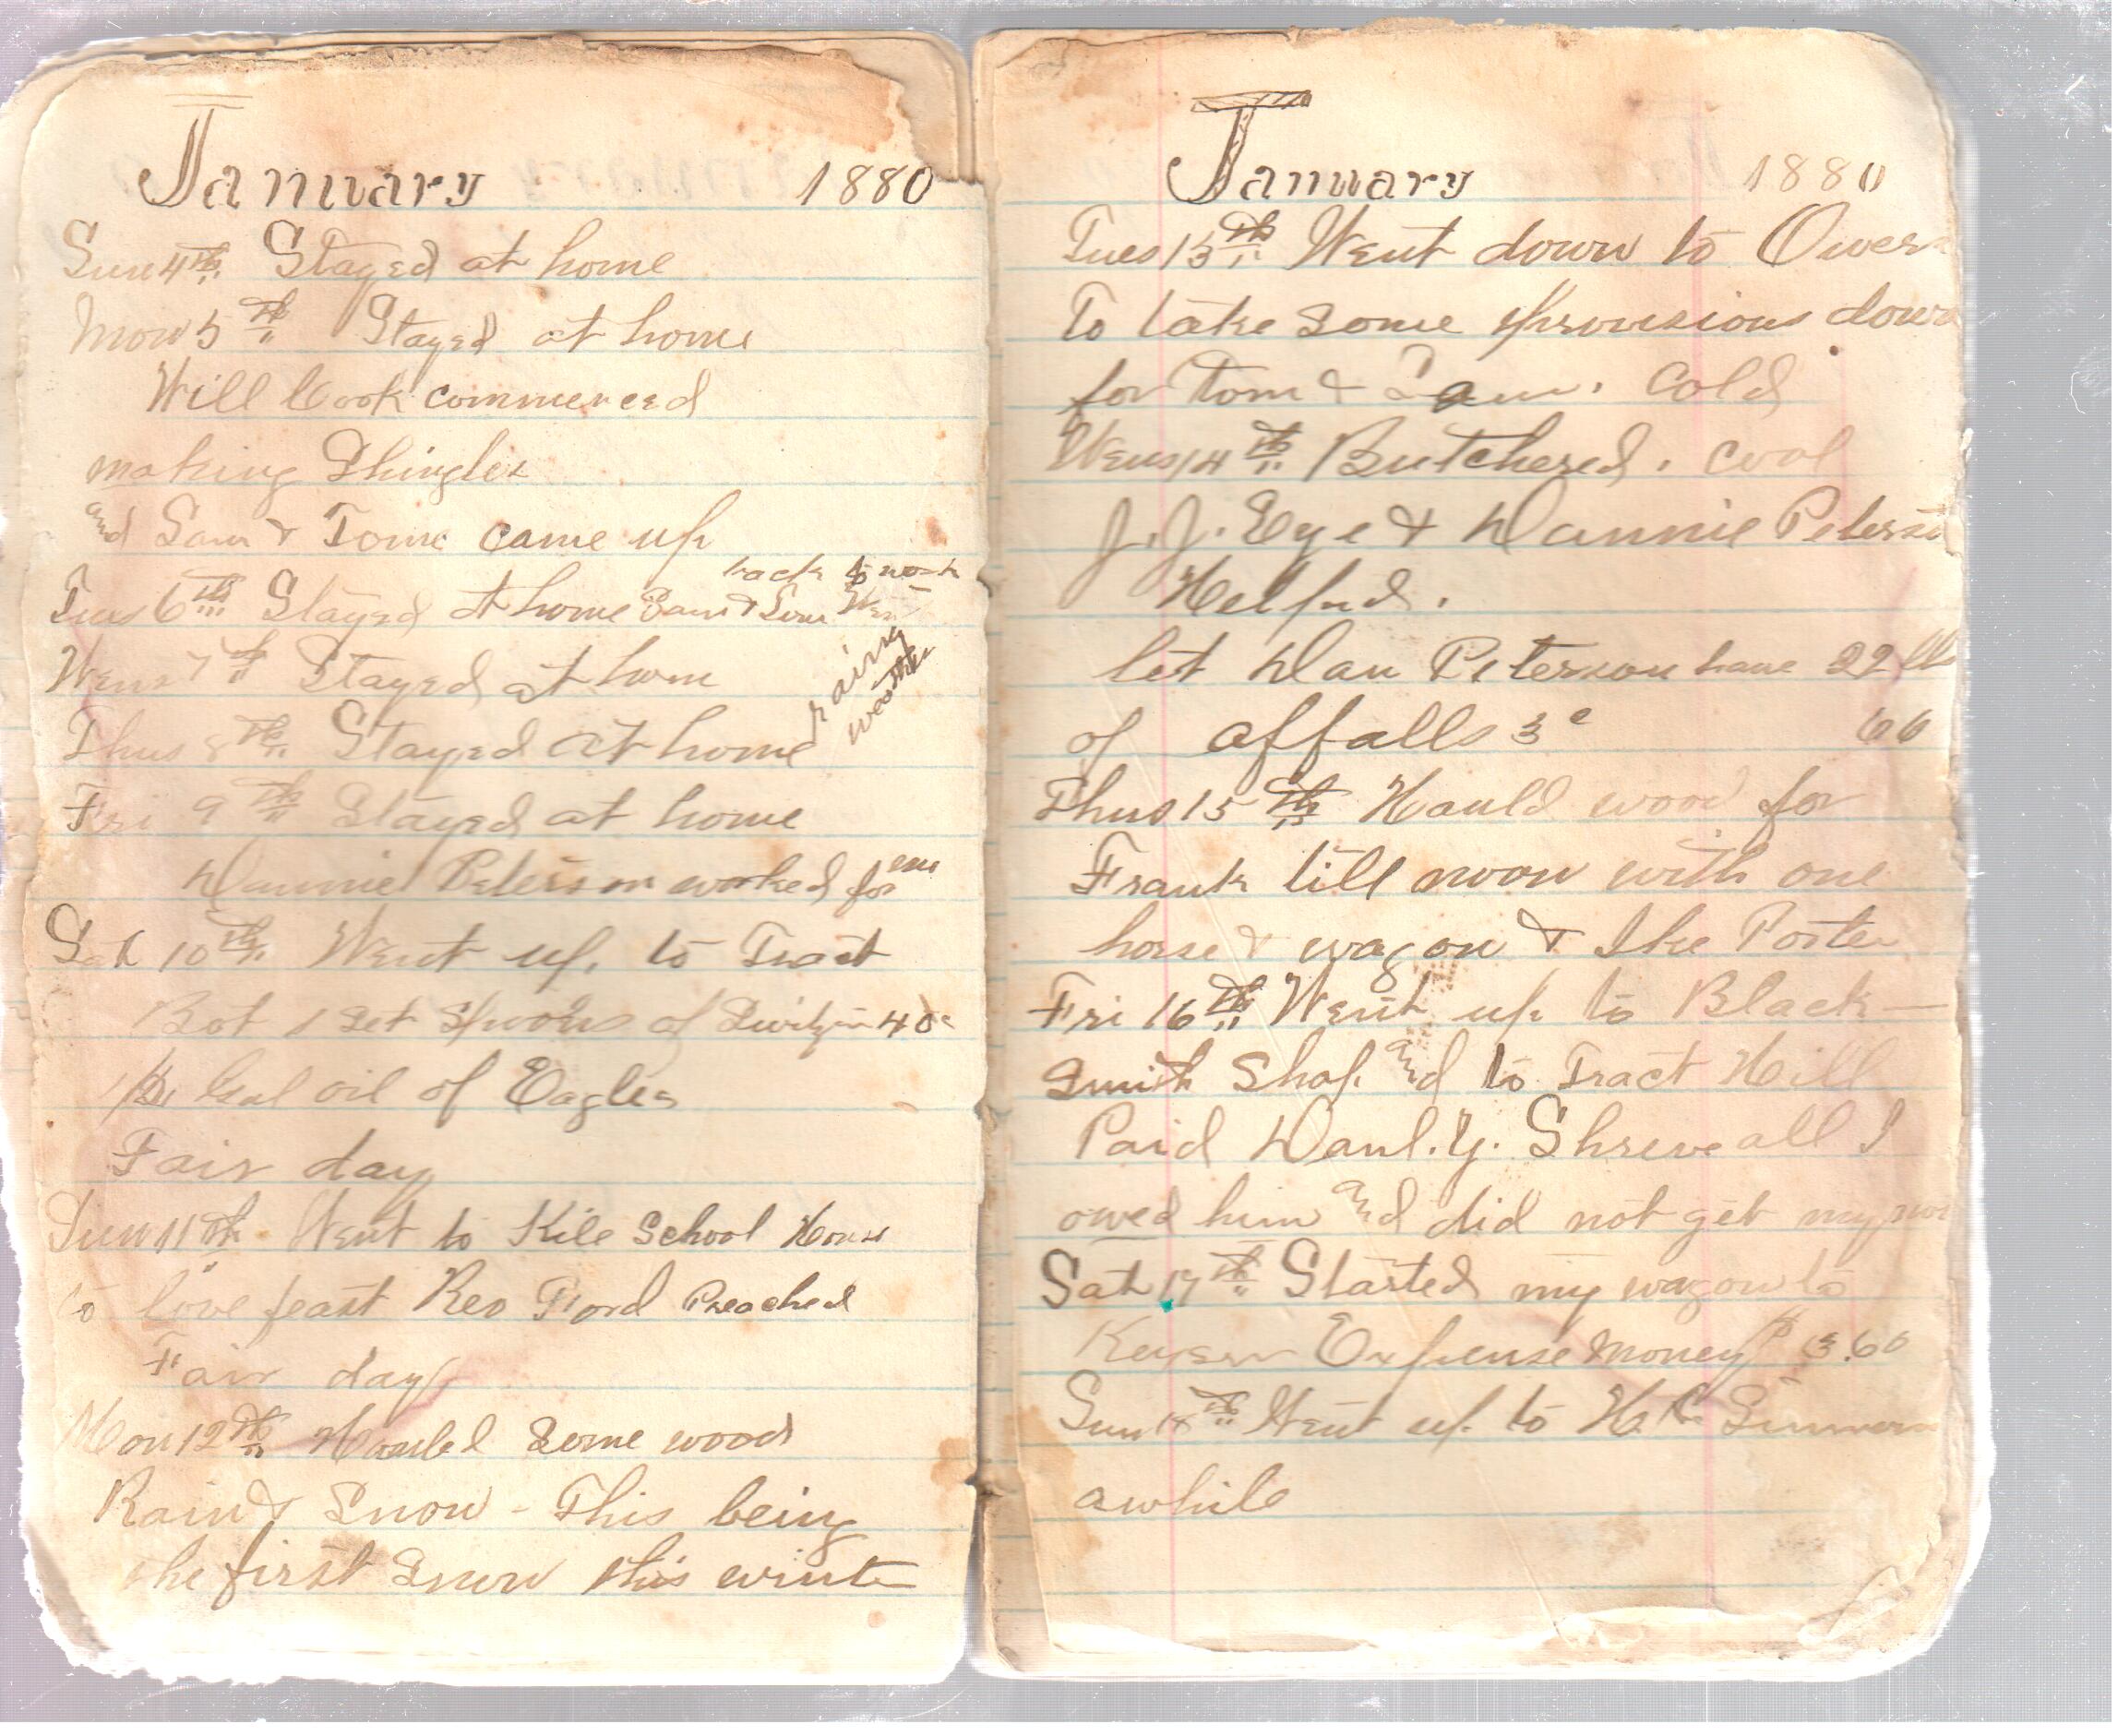 January 1880
Sun 4th Stayed at home
Mon 5th Stayed at home
Will Cook commenced
making Shingles
and Sam & Tome came up
back to work
Tues 6th Stayed at home Sam & Went
Wens 7th Stayed at home
rainy
weather
Thus 8th Stayed at home
Fri 9th Stayed at home
Dannie Peterson worked for me
Sat 10th Went up to Tract
Bot 1 set Spoons of 40c
Gal oil of Eagles
Fair day
Sun 11th Went to Kile School House
to love feast Rev Ford Preached
Fair day
Mon 12th some wood
Rain & Snow - This being
the first Snow this winter
January 1880
Tues 13th Went down to
To take some provisions down
for Tom & Sam. Cold
Wens 14th Butchered. cool
J. J. Eye & Dannie Peterson
Helped.
let Dan Peterson have 22 lb
of affalls 3c 66
Thus 15th Hauld wood for
Frank till noon with one
horse & wagon & Ike Porter
Fri 16th Went up to Black-
Smith Shop and to Tract Hill
Paid Danl. Y. Shreve all I
owed him and did not get my
Sat 17th Started my wagon to
Keyser Expense Money $3.60
Sun 18th Went up to
awhile